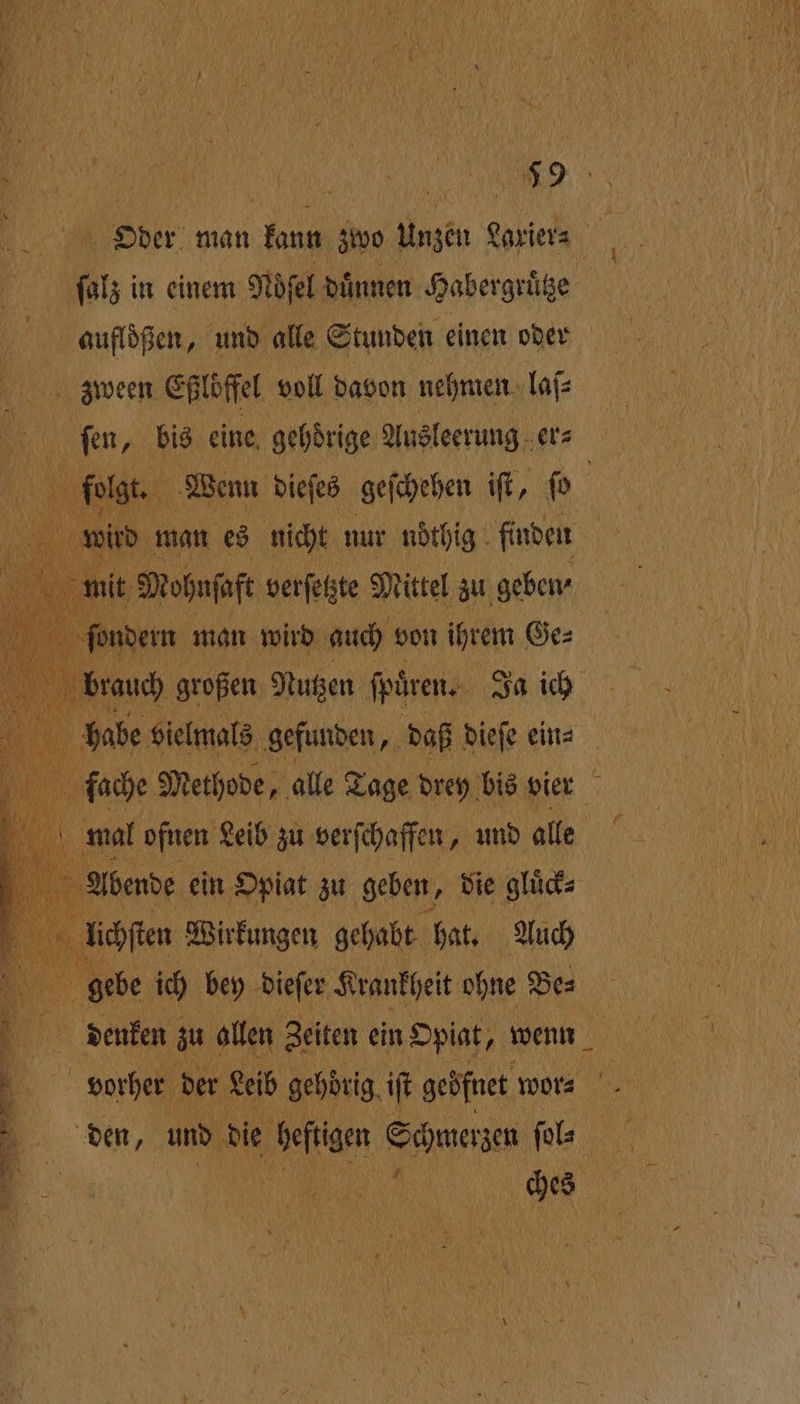 59
Oder man kann zwo Unzen Laxier⸗
ſalz in einem Noͤſel duͤnnen Habergruͤtze
aufloͤßen, und alle Stunden einen oder
zween Eßloͤffel voll davon nehmen laſ⸗
ſen, bis eine gehoͤrige Ausleerung er⸗
folgt. Wenn dieſes geſchehen iſt, ſo
wird man es nicht nur noͤthig finden
mit Mohnſaft verſetzte Mittel zu geben,
ſondern man wird auch von ihrem Ge⸗
brauch großen Nutzen ſpuͤren. Ja ich
habe vielmals gefunden, daß dieſe ein⸗
fache Methode, alle Tage drey bis vier
mal ofnen Leib zu verſchaffen, und alle
Abende ein Opiat zu geben, die gluͤck⸗
lichſten Wirkungen gehabt hat. Auch
gebe ich bey dieſer Krankheit ohne Be⸗
denken zu allen Zeiten ein Opiat, wenn
vorher der Leib gehoͤrig iſt geoͤfnet wor⸗
den, und die heftigen Schmerzen ſol⸗
ches